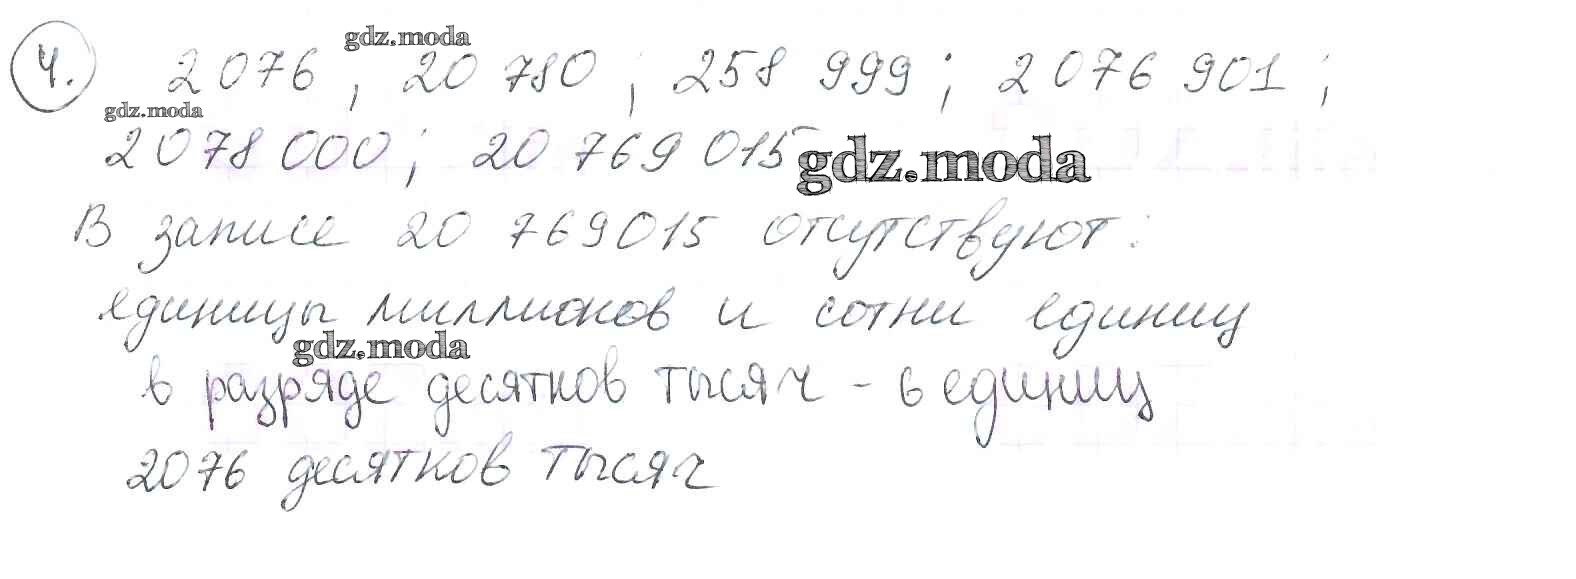 gdz.moda
4. 2 076, 20 780; 258 999; 2 076 901;
gdz.moda
2 078 000; 20 769 015
gdz.moda
В записе 20 769015 отсутствуют:
единицы миллионов и сотни единиц
gdz.moda
в разряде десятков тысяч - 6 единиц
2076 десятков тысяч